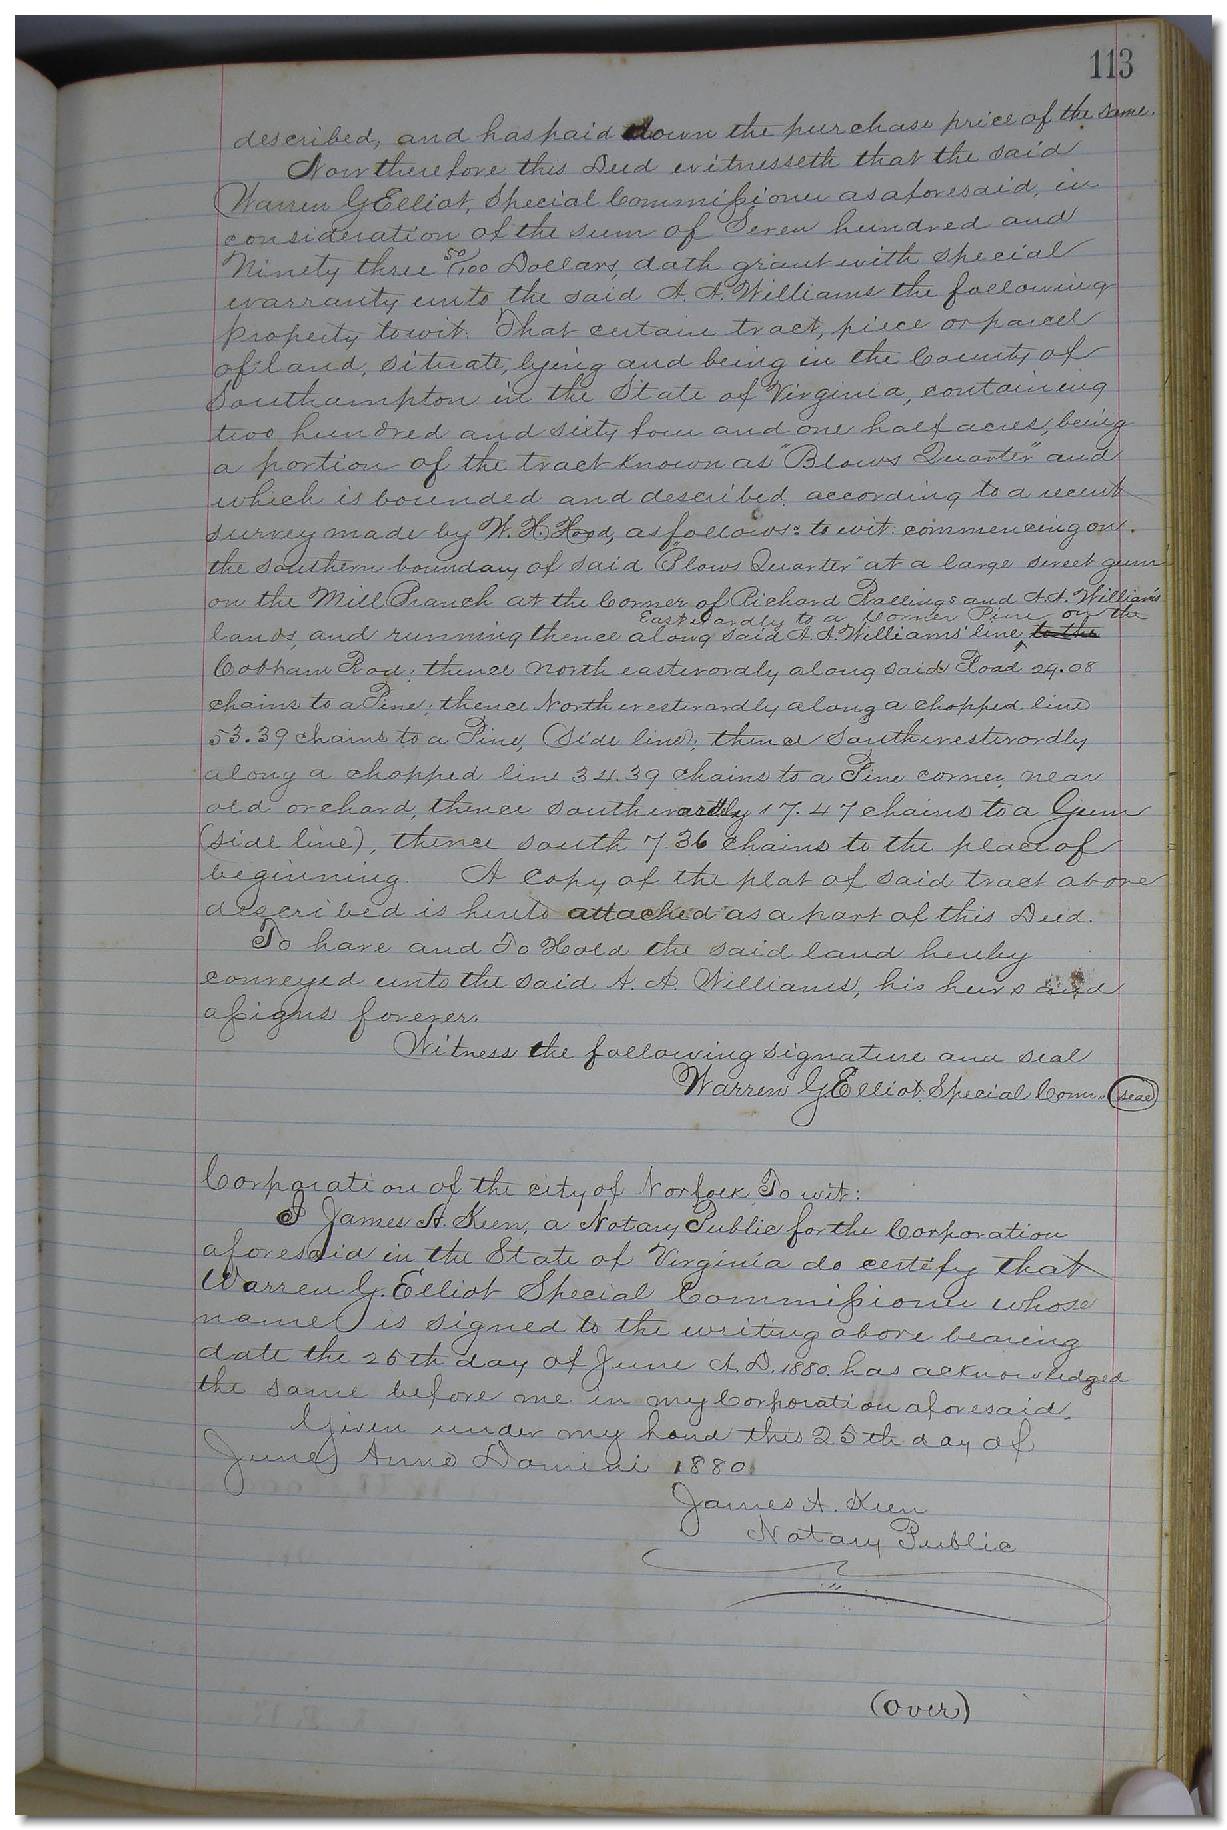 113
described, and has paid down the purchase price of the same.
Now therefore this Deed witnesseth that the said
Warren G Elliot, Special Commissioner as aforesaid, in
consideration of the sum of Seven hundred and
Ninety three 50/100 Dollars, doth grant with special
warranty unto the said A. A. Williams the following
property towit: That certain tract, piece or parcel
of land, situate, lying and being in the County of
Southampton in the State of Virginia, containing
two hundred and sixty four and one half acres, being
a portion of the tract known as "Blows Quarter" and
which is bounded and described according to a recent
survey made by W. H. Hood, as follows: to wit: commencing on
the southern boundary of said "Blows Quarter" at a large sweet gum
on the Mill Branch at the Corner of Richard Rallings and A. A. Williams
Eastwardly to a corner Pine on the
lands, and running thence along said A A. Williams' line, to the
Cobham Road; thence North eastwardly along said Road 24.08
chains to a Pine; thence North westwardly along a chopped line
53.39 chains to a Pine, (side line); thence Southwestwardly
along a chopped line 34.39 chains to a Pine corner, near
old orchard, thence southwardly 17.47 chains to a Gum
(side line), thence south 7 36 chains to the place of
beginning. A Copy of the plat of said tract above
described is hereto attached as a part of this Deed.
To have and To Hold the said land hereby
conveyed unto the said A. A. Williams, his heirs and
assigns forever.
Witness the following signature and seal
Warren G. Elliot, Special Comr. (seal)
Corporation of the city of Norfolk, To wit:
I James A. Keen, a Notary Public for the Corporation
aforesaid in the State of Virginia do certify that
Warren G. Elliot Special Commissioner whose
name is signed to the writing above bearing
date the 25th day of June A. D. 1880. has acknowledged
the same before me in my Corporation aforesaid.
Given under my hand this 25th day of
June Anno Domini 1880
James A. Keen
Notary Public
(Over)